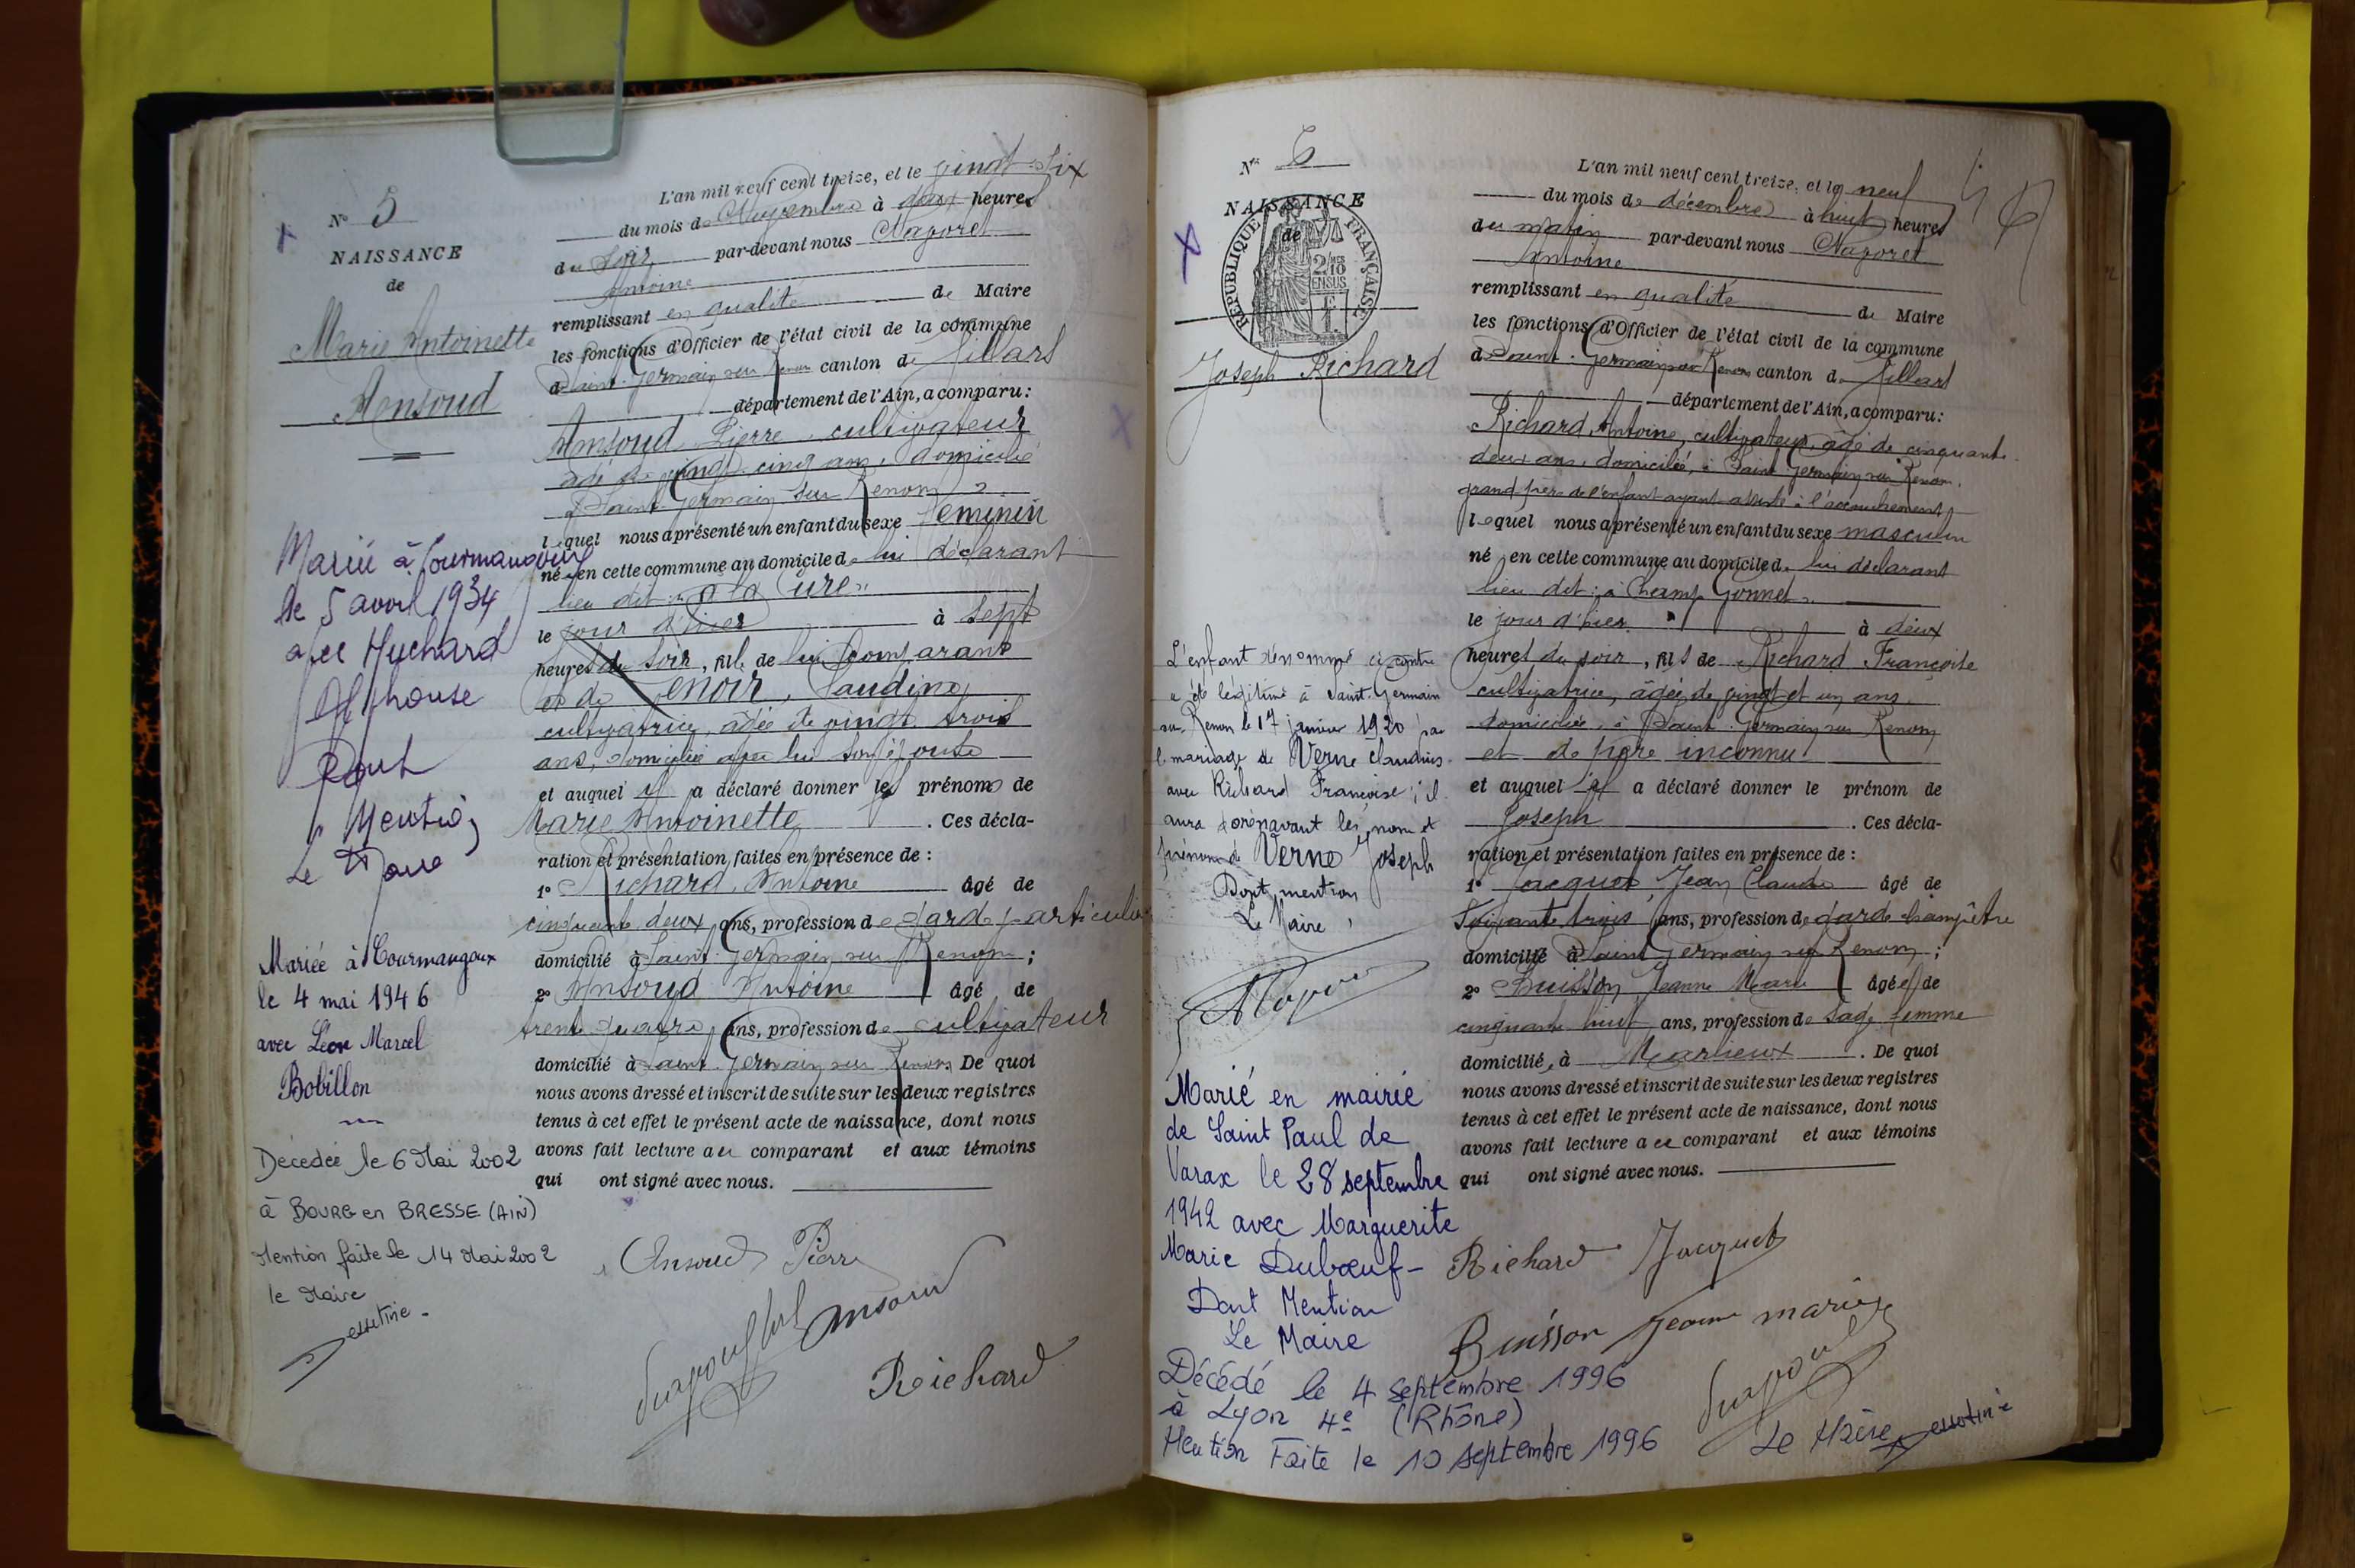 N° 5
NAISSANCE
de
Marie Antoinette
Ansoud
Marié à Courmangoux
le 5 avril 1934
avec Huchard
Alphonse
Dont
Mention
Le Maire
Mariée à Courmangoux
le 4 mai 1946
avec Léon Marcel
Bobillon
Décédée le 6 Mai 2002
à BOURG en BRESSE (AIN)
Mention faite le 14 Mai 2002
le Maire
L'an mil neuf cent treize, et le vingt six
du mois de Novembre à deux heures
du soir par-devant nous
Antoine
remplissant en qualité de Maire
les fonctions d'Officier de l'état civil de la commune
de Saint-Germain sur Renon canton de Villars
département de l'Ain, a comparu :
Ansoud Pierre, cultivateur
âgé de vingt cinq ans, domicilié
à Saint Germain sur Renon
lequel nous a présenté un enfant du sexe féminin
né en cette commune au domicile de lui déclarant
lieu dit « à la Cure »
le jour d'hier à sept
heures du soir, fil de lui comparant
et de Claudine
cultivatrice, âgée de vingt trois
ans, domiciliée avec lui son épouse
et auquel il a déclaré donner les prénoms de
Marie Antoinette . Ces décla-
ration et présentation faites en présence de :
1° Richard Antoine âgé de
cinquante deux ans, profession de garde particulier
domicilié à Saint-Germain sur Renon ;
2° Ansoud Antoine âgé de
trente quatre ans, profession de cultivateur
domicilié à Saint-Germain sur Renon De quoi
nous avons dressé et inscrit de suite sur les deux registres
tenus à cet effet le présent acte de naissance, dont nous
avons fait lecture au comparant et aux témoins
qui ont signé avec nous.
Ansoud Pierre
Ansoud
Richard
N° 6
NAISSANCE
de
RÉPUBLIQUE FRANÇAISE
Joseph Richard
L'enfant dénommé ci-contre
a été légitimé à Saint-Germain
sur Renon le 17 janvier 1920 par
le mariage de Verne Claudius
avec Richard Françoise ; il
aura dorénavant les nom et
prénom de Verne Joseph
Dont mention
Le Maire
Marié en mairie
de Saint Paul de
Varax le 28 septembre
1942 avec Marguerite
Marie Dubœuf -
Dont Mention
Le Maire
Décédé le 4 septembre 1996
à Lyon 4e (Rhône)
Mention Faite le 10 septembre 1996
L'an mil neuf cent treize, et le neuf
du mois de décembre à huit heures
du matin par-devant nous
Antoine
remplissant en qualité de Maire
les fonctions d'Officier de l'état civil de la commune
de Saint-Germain sur Renon canton de Villars
département de l'Ain, a comparu :
Richard Antoine, cultivateur âgé de cinquante
deux ans, domicilié à Saint-Germain sur Renon,
grand père de l'enfant ayant assisté à l'accouchement
lequel nous a présenté un enfant du sexe masculin
né en cette commune au domicile de lui déclarant
lieu dit « à Champ Gonnet »
le jour d'hier à deux
heures du soir, fils de Richard Françoise
cultivatrice, âgée de vingt et un ans,
domiciliée à Saint-Germain sur Renon
et de père inconnu
et auquel il a déclaré donner le prénom de
Joseph . Ces décla-
ration et présentation faites en présence de :
1° Jacquet Jean Claude âgé de
soixante trois ans, profession de garde champêtre
domicilié à Saint Germain sur Renon ;
2° Buisson Jeanne Marie âgée de
cinquante huit ans, profession de sage femme
domicilié, à Marlieux . De quoi
nous avons dressé et inscrit de suite sur les deux registres
tenus à cet effet le présent acte de naissance, dont nous
avons fait lecture a ce comparant et aux témoins
qui ont signé avec nous.
Richard Jacquet
Buisson Jeanne marie
Le Maire